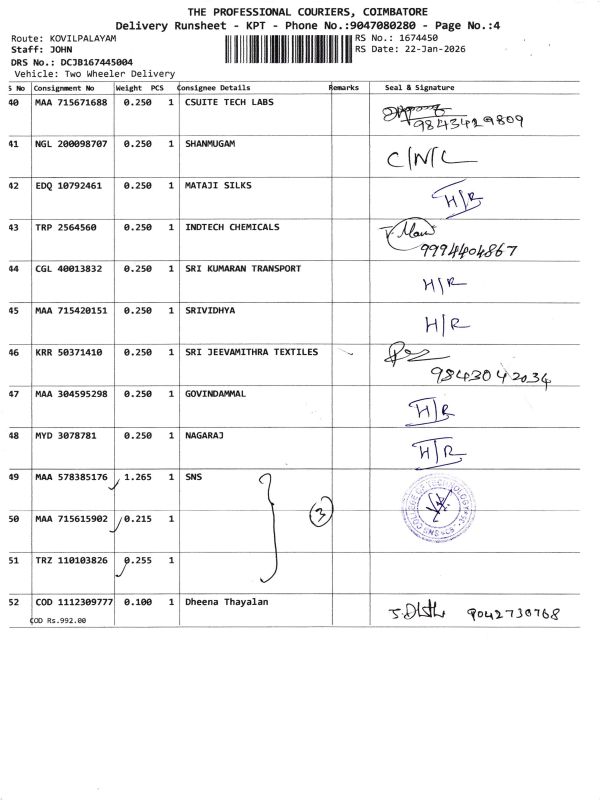 THE PROFESSIONAL COURIERS, COIMBATORE
Delivery Runsheet - KPT - Phone No.:9047080280 - Page No.:4
Route: KOVILPALAYAM
RS No.: 1674450
Staff: JOHN
RS Date: 22-Jan-2026
DRS No.: DCJB167445004
Vehicle: Two Wheeler Delivery
S No Consignment No Weight PCS Consignee Details Remarks Seal & Signature
40 MAA 715671688 0.250 1 CSUITE TECH LABS
9843429809
41 NGL 200098707 0.250 1 SHANMUGAM C/N/L
42 EDQ 10792461 0.250 1 MATAJI SILKS H/R
43 TRP 2564560 0.250 1 INDTECH CHEMICALS
9994404867
44 CGL 40013832 0.250 1 SRI KUMARAN TRANSPORT H/R
45 MAA 715420151 0.250 1 SRIVIDHYA H/R
46 KRR 50371410 0.250 1 SRI JEEVAMITHRA TEXTILES
9843042034
47 MAA 304595298 0.250 1 GOVINDAMMAL H/R
48 MYD 3078781 0.250 1 NAGARAJ H/R
49 MAA 578385176 1.265 1 SNS
50 MAA 715615902 0.215 1 3
SNS COLLEGE OF TECHNOLOGY
51 TRZ 110103826 0.255 1
52 COD 1112309777 0.100 1 Dheena Thayalan 9042730768
COD Rs.992.00